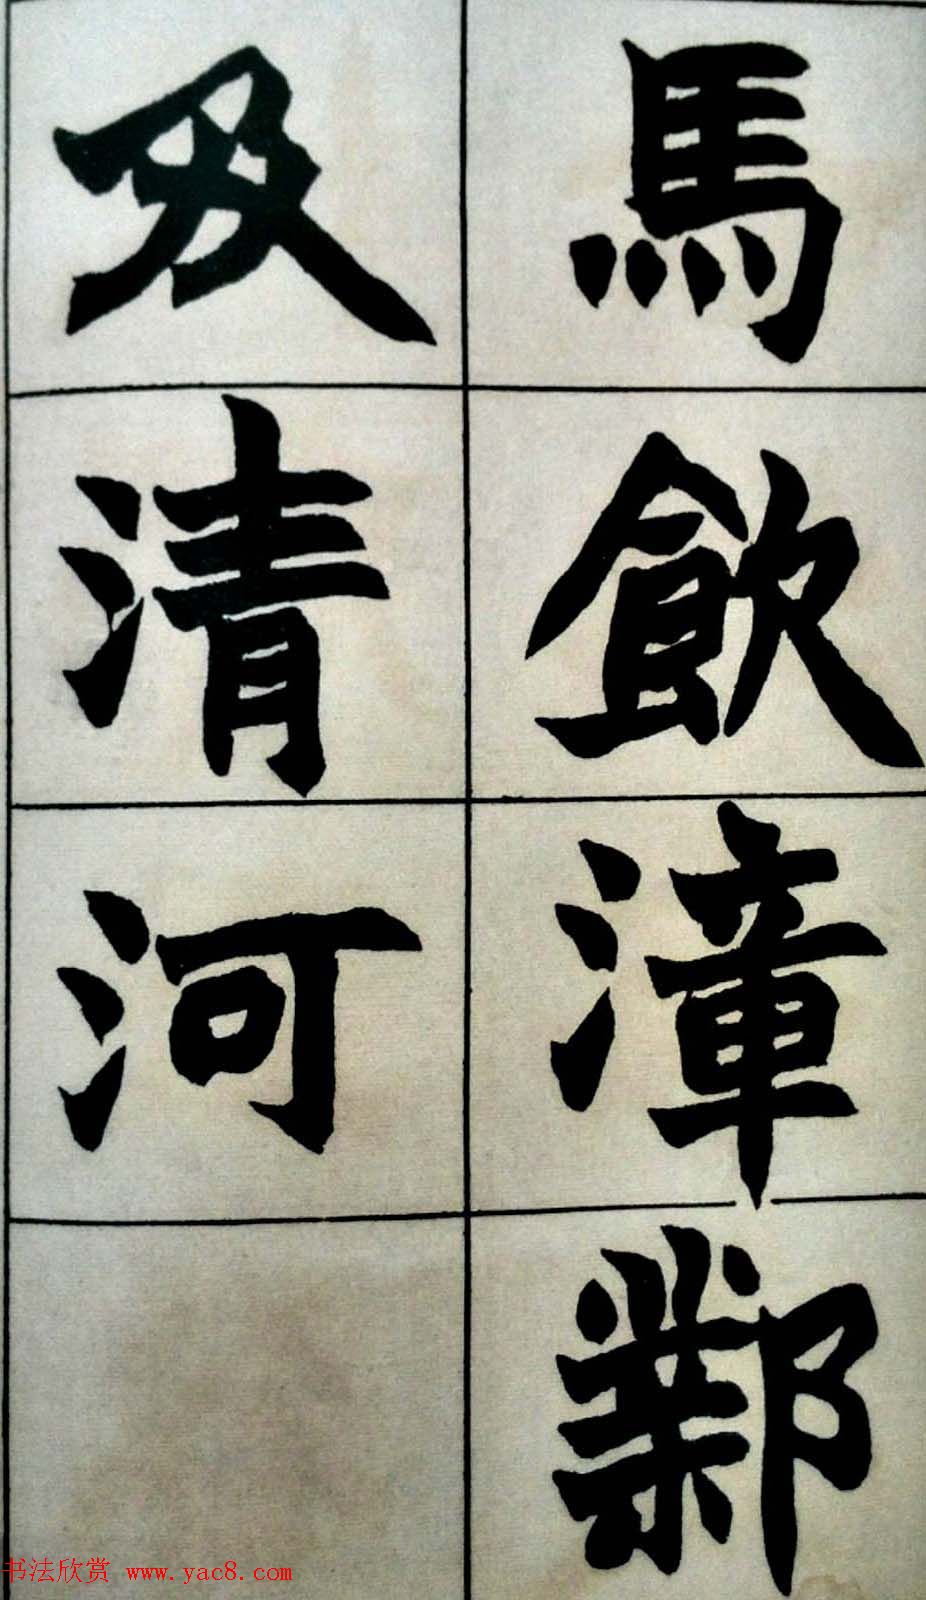 馬飲漳鄴
及清河
书法欣赏 www.yac8.com